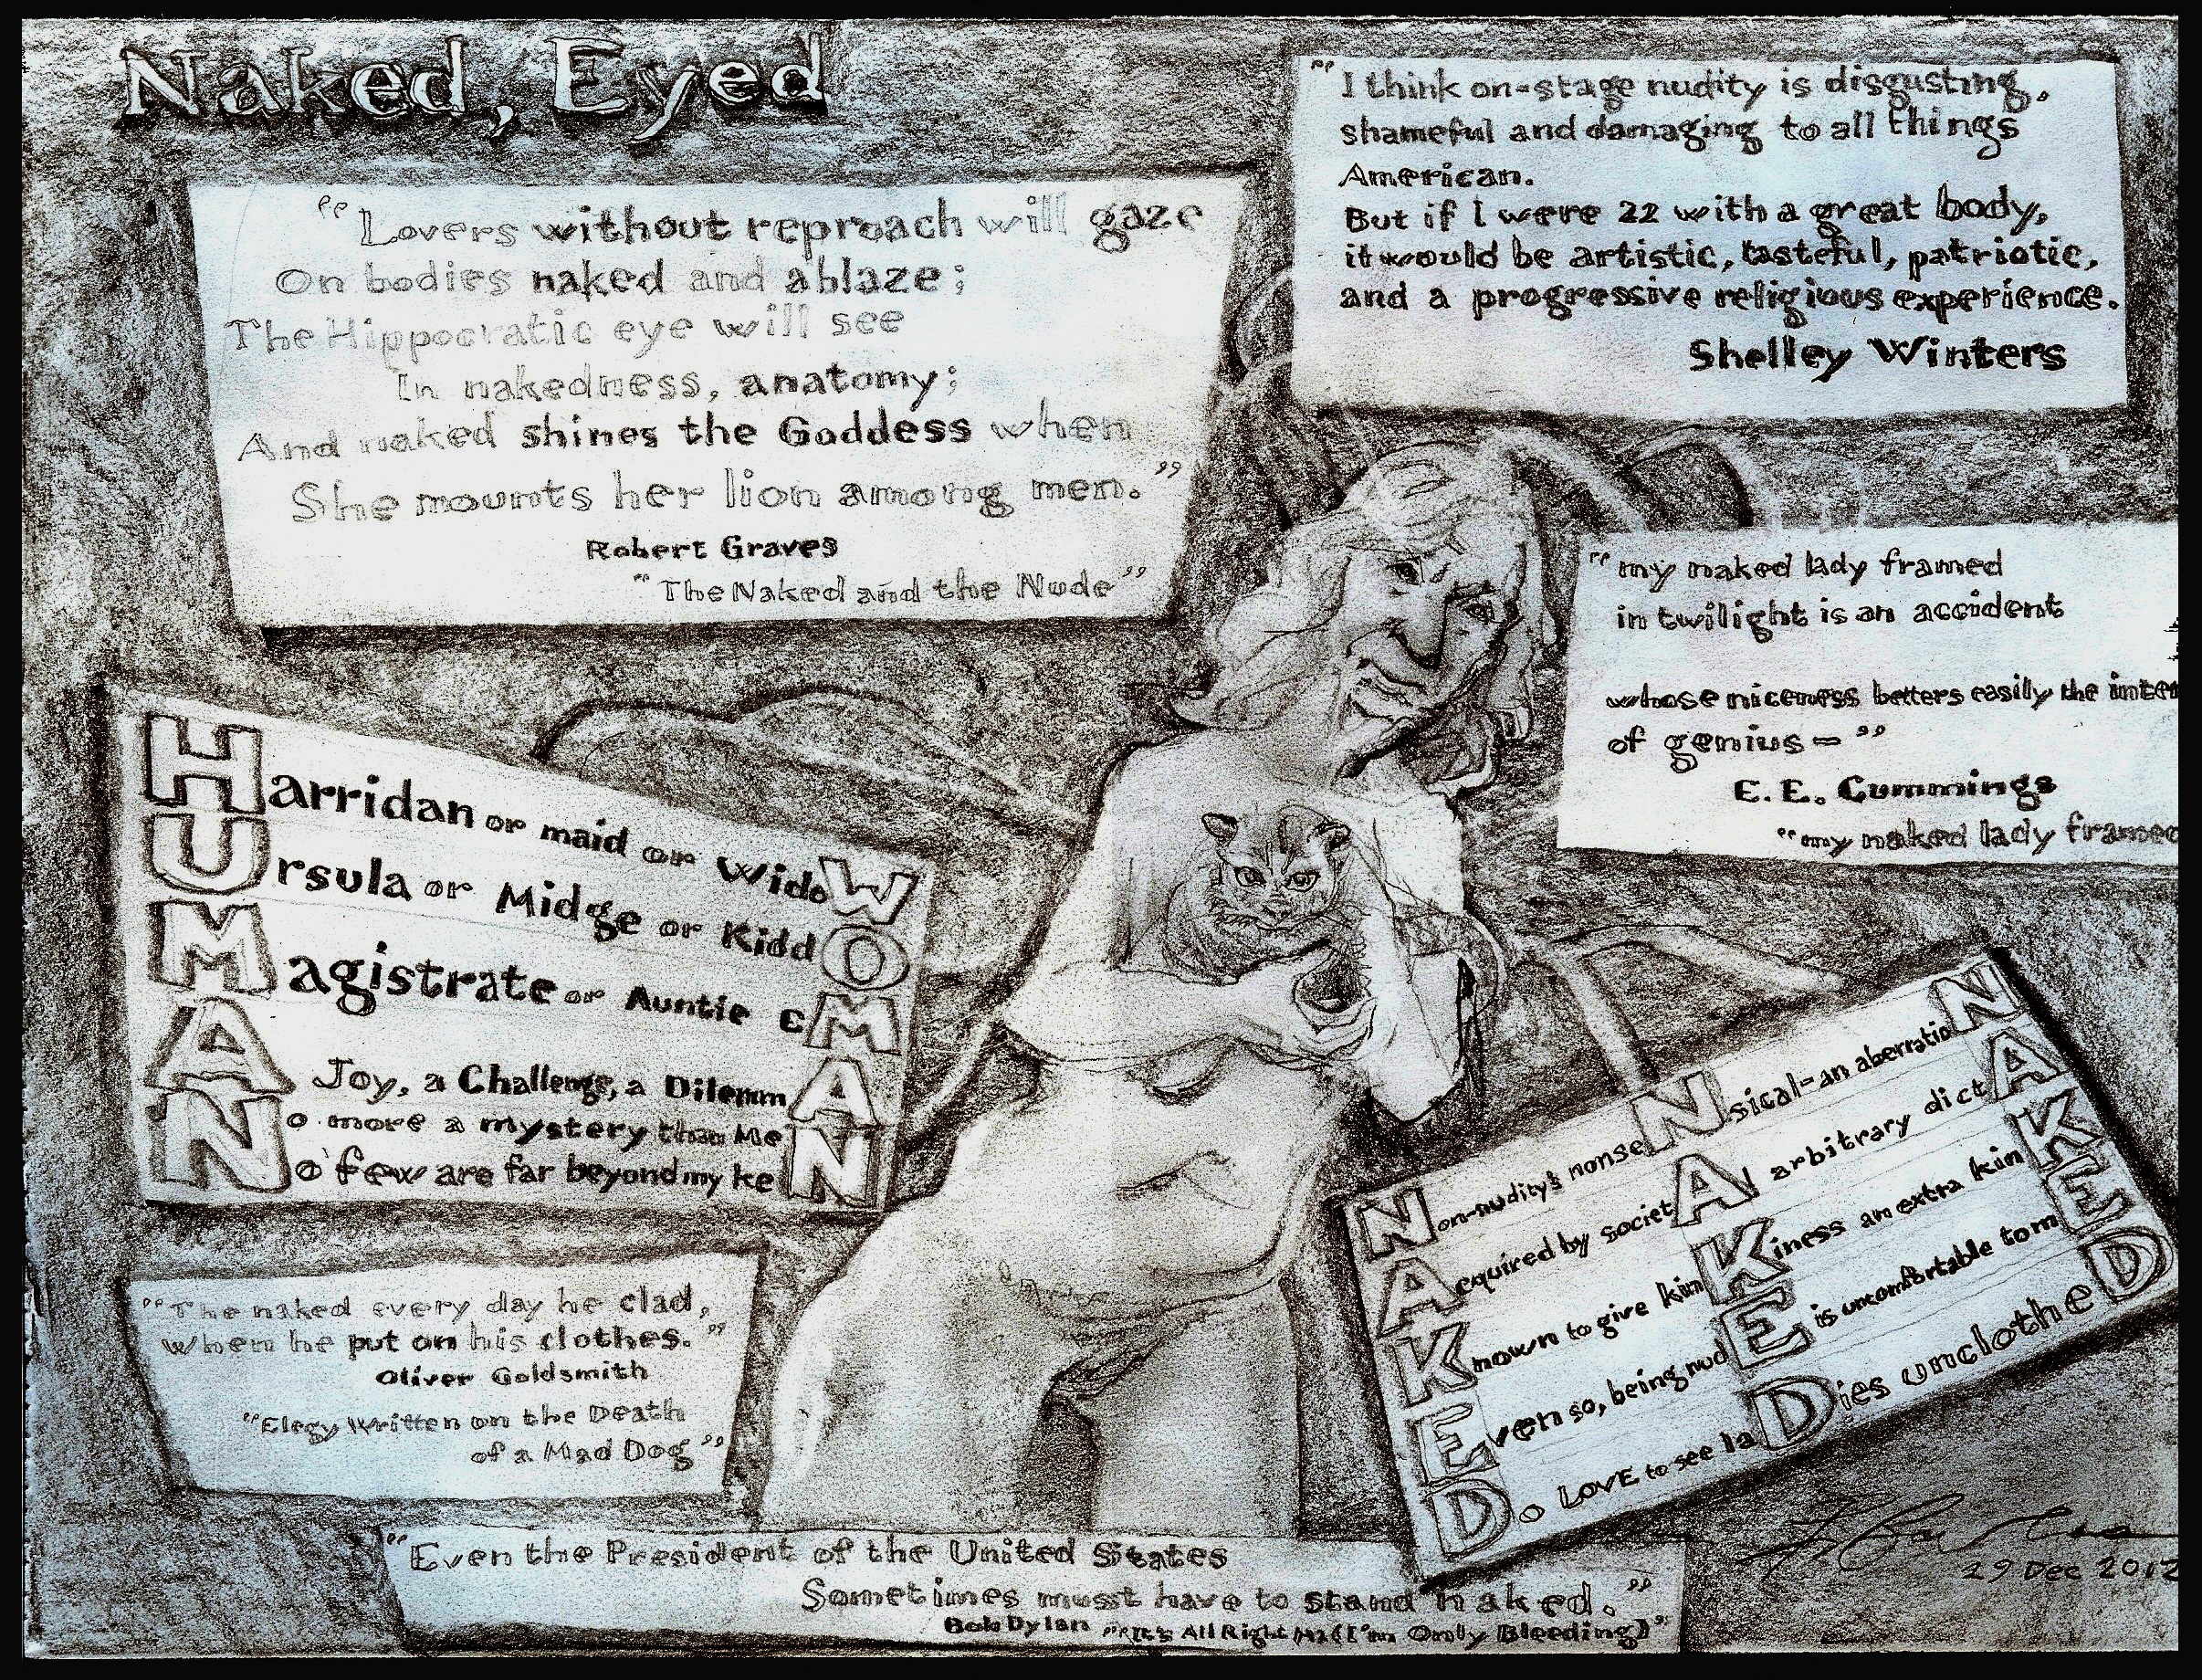 Naked, Eyed
"Lovers without reproach will gaze
On bodies naked and ablaze;
The Hippocratic eye will see
In nakedness, anatomy;
And naked shines the Goddess when
She mounts her lion among men."
Robert Graves
"The Naked and the Nude"
"I think on-stage nudity is disgusting,
shameful and damaging to all things
American.
But if I were 22 with a great body,
it would be artistic, tasteful, patriotic,
and a progressive religious experience.
Shelley Winters
"my naked lady framed
in twilight is an accident
whose niceness betters easily the inten
of genius - "
E. E. Cummings
"my naked lady framed
Harridan or maid or WidoW
Ursula or Midge or KiddO
Magistrate or Auntie EM
A Joy, a Challenge, a DilemmA
No more a mystery than Me
No few are far beyond my keN
"The naked every day he clad,
When he put on his clothes."
Oliver Goldsmith
"Elegy Written on the Death
of a Mad Dog"
Non-nudity's nonseNsical - an aberratioN
Acquired by societA arbitrary dictA
Known to give kinKiness an extra kinK
Even so, being nudE is uncomfortable to mE
Do LOVE to see laDies unclotheD
"Even the President of the United States
Sometimes must have to stand naked."
Bob Dylan "It's All Right Ma (I'm Only Bleeding)"
29 Dec 2012